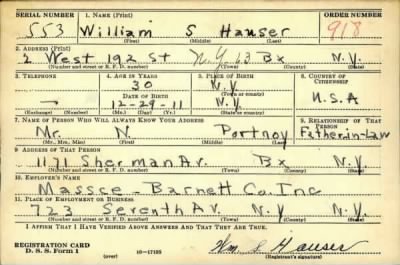 SERIAL NUMBER 1. NAME (Print) ORDER NUMBER
553 William S Hauser 918
(First) (Middle) (Last)
2. ADDRESS (Print)
2 West 192 St N.Y. 63 Bx N.Y.
(Number and street or R. F. D. number) (Town) (County) (State)
3. TELEPHONE 4. AGE IN YEARS 5. PLACE OF BIRTH 6. COUNTRY OF CITIZENSHIP
30 N.Y.
DATE OF BIRTH (Town or county)
12-29-11 N.Y. U.S.A
(Exchange) (Number) (Mo.) (Day) (Yr.) (State or country)
7. NAME OF PERSON WHO WILL ALWAYS KNOW YOUR ADDRESS 8. RELATIONSHIP OF THAT PERSON
Mr. N. Portnoy Father-in-Law
(Mr., Mrs., Miss) (First) (Middle) (Last)
9. ADDRESS OF THAT PERSON
1171 Sherman Av. Bx N.Y.
(Number and street or R. F. D. number) (Town) (County) (State)
10. EMPLOYER'S NAME
Massce - Barnett Co. Inc
11. PLACE OF EMPLOYMENT OR BUSINESS
723 Seventh Av. N.Y N.Y N.Y.
(Number and street or R. F. D. number) (Town) (County) (State)
I AFFIRM THAT I HAVE VERIFIED ABOVE ANSWERS AND THAT THEY ARE TRUE.
REGISTRATION CARD
D. S. S. Form 1 16-17105 Wm S. Hauser
(over) (Registrant's signature)